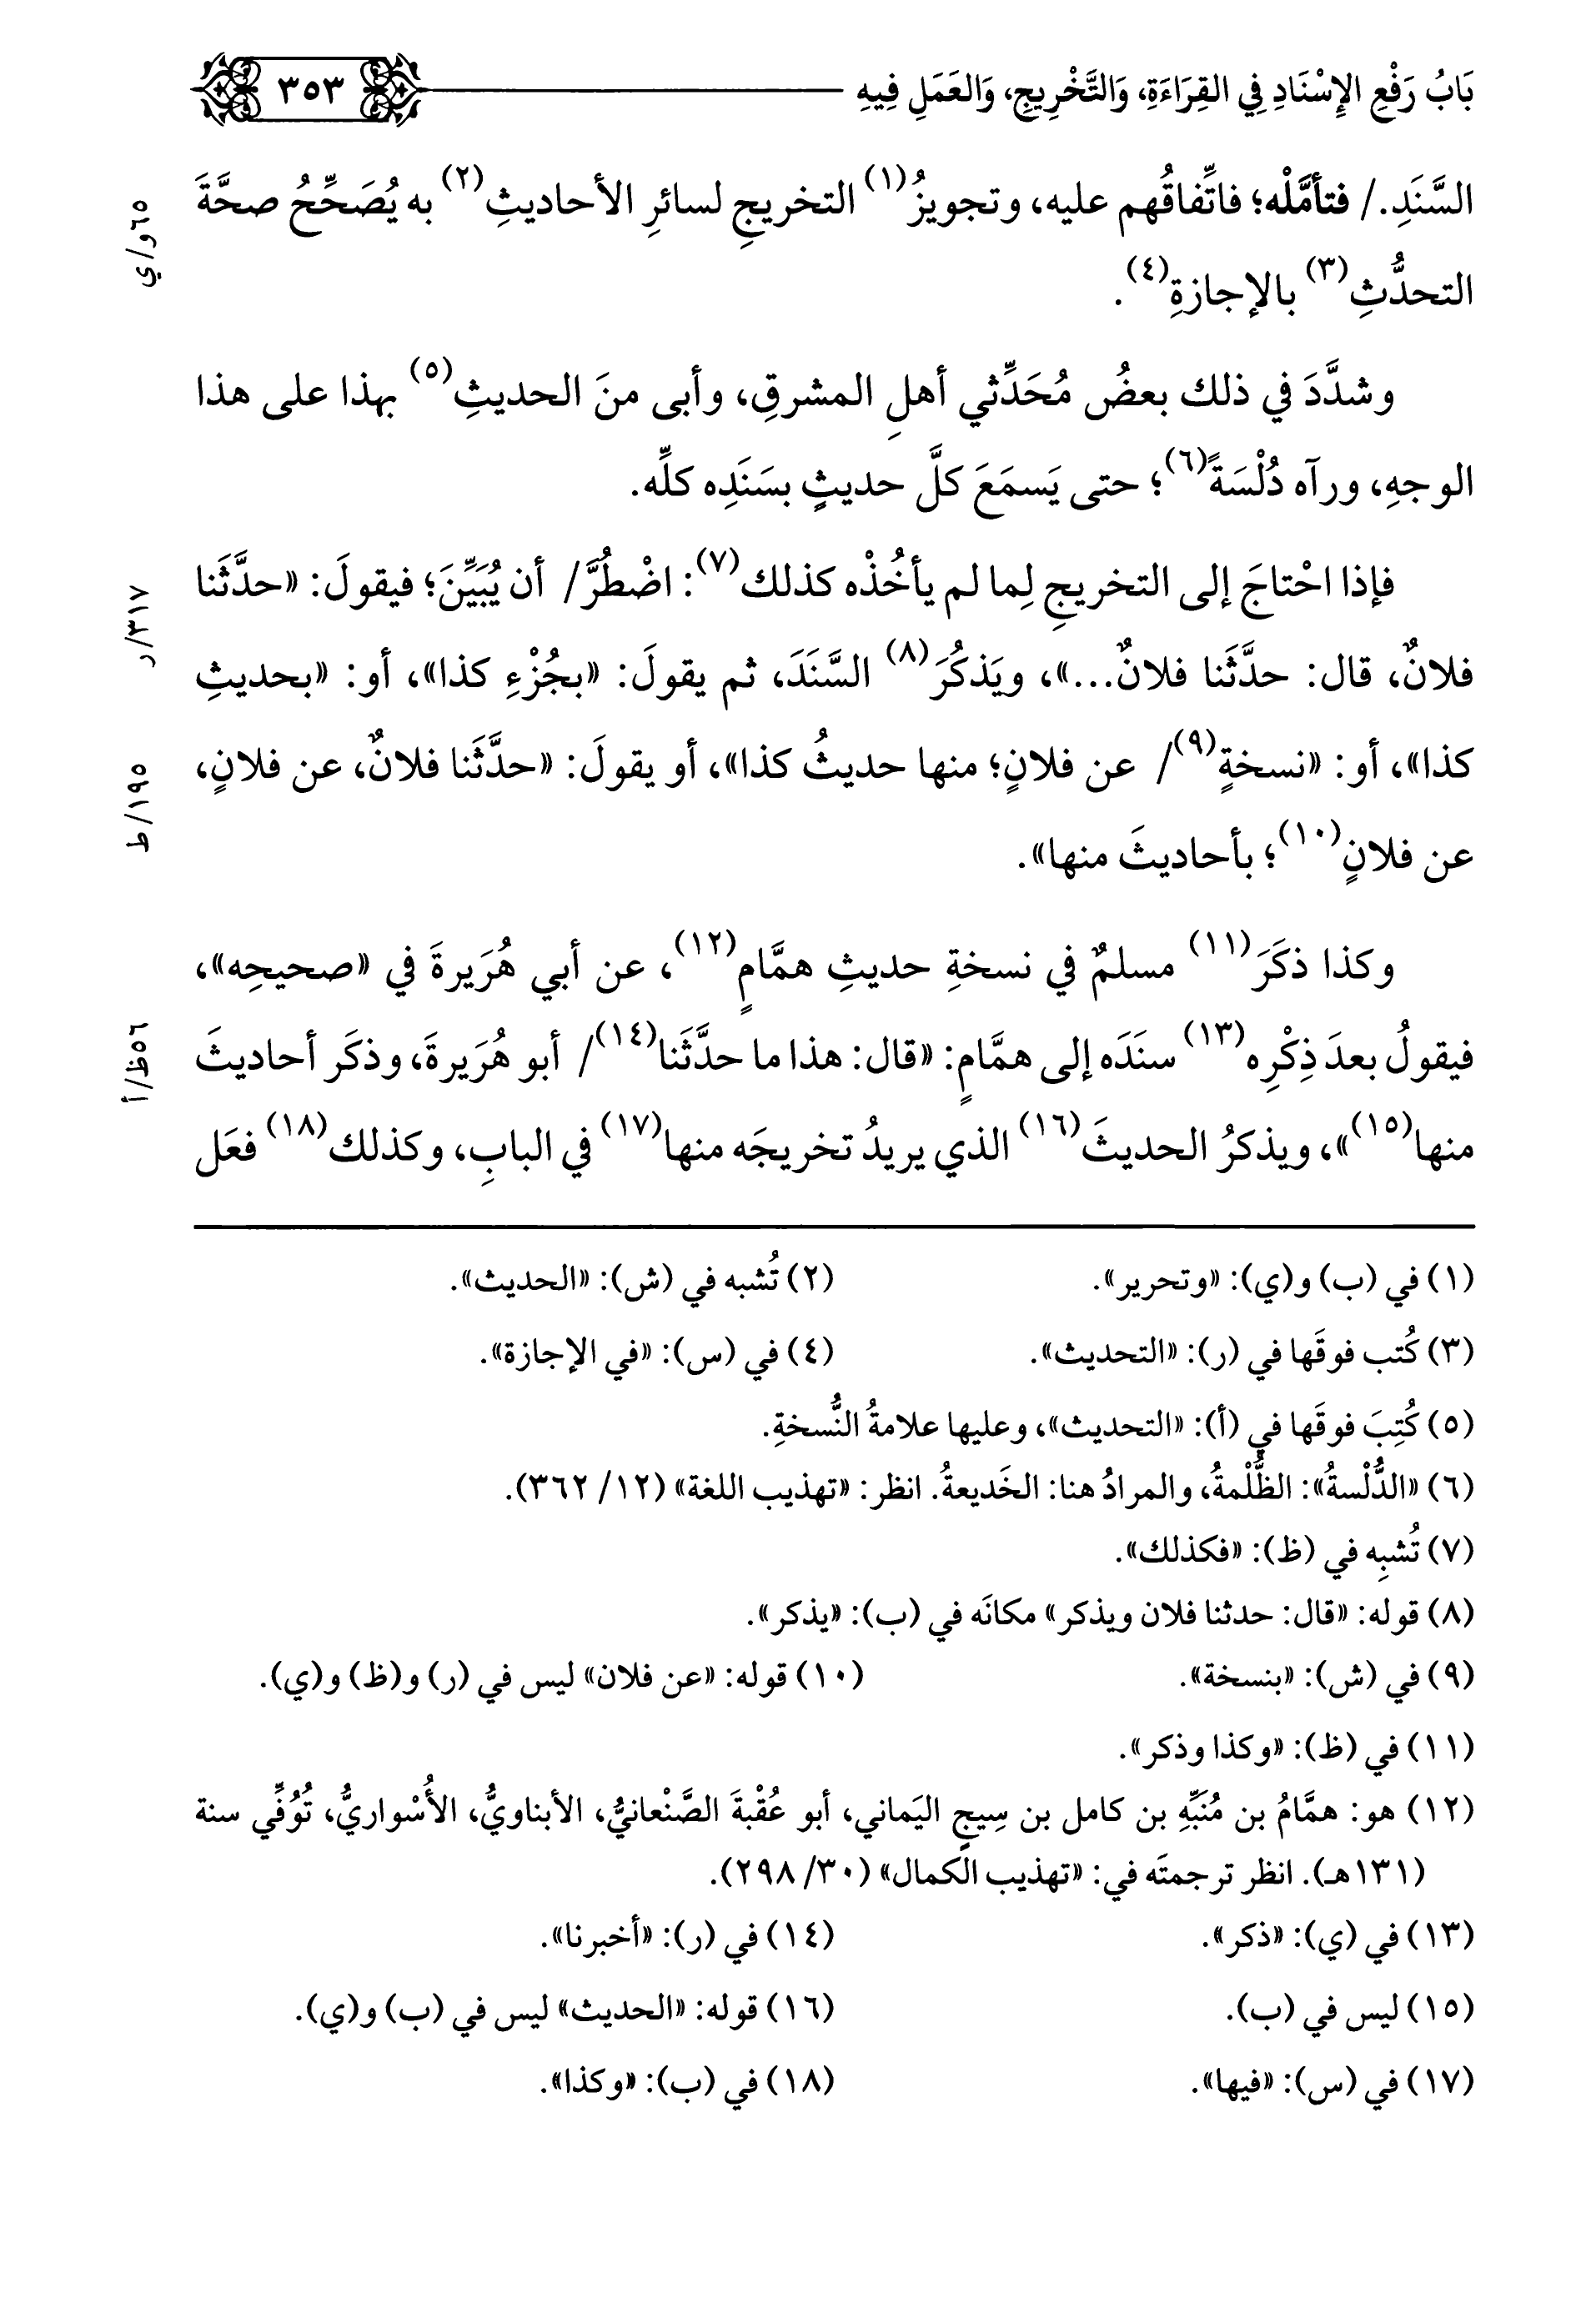 بَابُ رَفْعِ الإِسْنَادِ فِي القِرَاءَةِ، وَالتَّخْرِيجِ، وَالعَمَلِ فِيهِ
٣٥٣
السَّنَدِ./ فتأمَّلْه؛ فاتِّفاقُهم عليه، وتجويزُ(١) التخريجِ لسائرِ الأحاديثِ(٢) به يُصَحِّحُ صحَّةَ
٦٥و/ي
التحدُّثِ(٣) بالإجازةِ(٤).
وشدَّدَ في ذلك بعضُ مُحَدِّثي أهلِ المشرقِ، وأبى منَ الحديثِ(٥) بهذا على هذا
الوجهِ، ورآه دُلْسَةً(٦)؛ حتى يَسمَعَ كلَّ حديثٍ بسَنَدِه كلِّه.
فإذا احْتاجَ إلى التخريجِ لِما لم يأخُذْه كذلك(٧): اضْطُرَّ/ أن يُبَيِّنَ؛ فيقولَ: «حدَّثَنا
٣١٧/ر
فلانٌ، قال: حدَّثَنا فلانٌ...»، ويَذكُرَ(٨) السَّنَدَ، ثم يقولَ: «بجُزْءِ كذا»، أو: «بحديثِ
كذا»، أو: «نسخةٍ(٩)/ عن فلانٍ؛ منها حديثُ كذا»، أو يقولَ: «حدَّثَنا فلانٌ، عن فلانٍ،
١٩٥/ط
عن فلانٍ(١٠)؛ بأحاديثَ منها».
وكذا ذكَرَ(١١) مسلمٌ في نسخةِ حديثِ همَّامٍ(١٢)، عن أبي هُرَيرةَ في «صحيحِه»،
فيقولُ بعدَ ذِكْرِه(١٣) سنَدَه إلى همَّامٍ: «قال: هذا ما حدَّثَنا(١٤)/ أبو هُرَيرةَ، وذكَر أحاديثَ
٥٦ظ/أ
منها(١٥)»، ويذكرُ الحديثَ(١٦) الذي يريدُ تخريجَه منها(١٧) في البابِ، وكذلك(١٨) فعَل
(١) في (ب) و(ي): «وتحرير».
(٢) تُشبه في (ش): «الحديث».
(٣) كُتب فوقَها في (ر): «التحديث».
(٤) في (س): «في الإجازة».
(٥) كُتِبَ فوقَها في (أ): «التحديث»، وعليها علامةُ النُّسخةِ.
(٦) «الدُّلْسةُ»: الظُّلْمةُ، والمرادُ هنا: الخَديعةُ. انظر: «تهذيب اللغة» (١٢/ ٣٦٢).
(٧) تُشبِه في (ظ): «فكذلك».
(٨) قوله: «قال: حدثنا فلان ويذكر» مكانَه في (ب): «يذكر».
(٩) في (ش): «بنسخة».
(١٠) قوله: «عن فلان» ليس في (ر) و(ظ) و(ي).
(١١) في (ظ): «وكذا وذكر».
(١٢) هو: همَّامُ بن مُنَبِّهِ بن كامل بن سِيجٍ اليَماني، أبو عُقْبةَ الصَّنْعانيُّ، الأبناويُّ، الأُسْواريُّ، تُوُفِّي سنة
(١٣١هـ). انظر ترجمتَه في: «تهذيب الكمال» (٣٠/ ٢٩٨).
(١٣) في (ي): «ذكر».
(١٤) في (ر): «أخبرنا».
(١٥) ليس في (ب).
(١٦) قوله: «الحديث» ليس في (ب) و(ي).
(١٧) في (س): «فيها».
(١٨) في (ب): «وكذا».